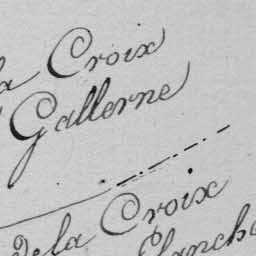 la Croix
Gallerne
De la Croix